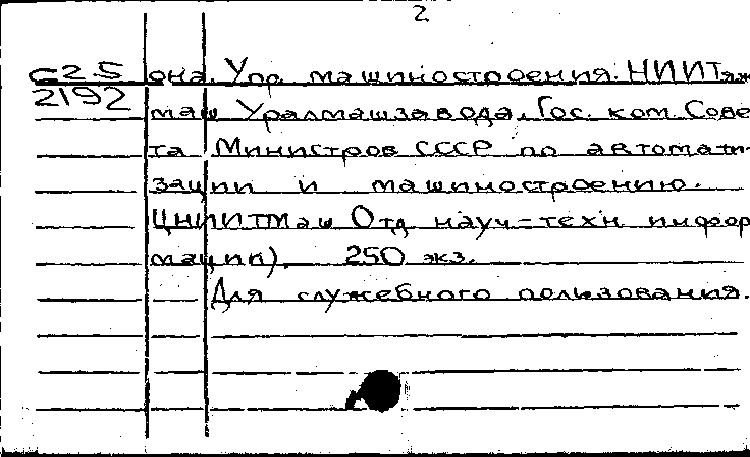 2
С25 она. Упр. машиностроения. НИИТяж
2192 маш Уралмашзавода. Гос. ком. Сове
та Министров СССР по автомати-
зации и машиностроению.
ЦНИИТМаш Отд науч-техн инфор
мации). 250 экз.
Для служебного пользования.